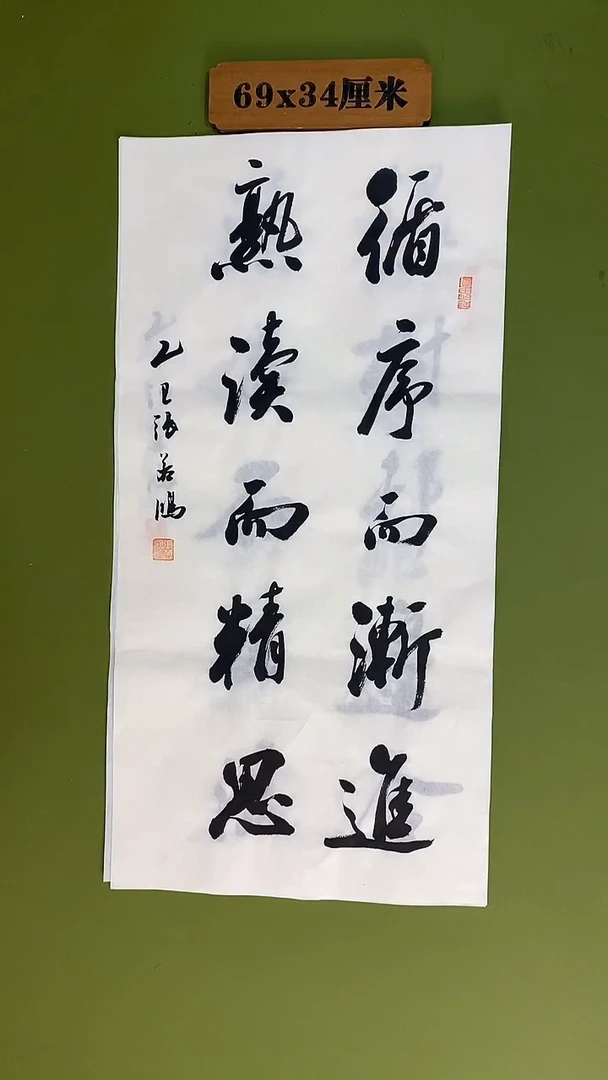 69x34厘米
循序而漸進
熟读而精思
乙巳张若鴻